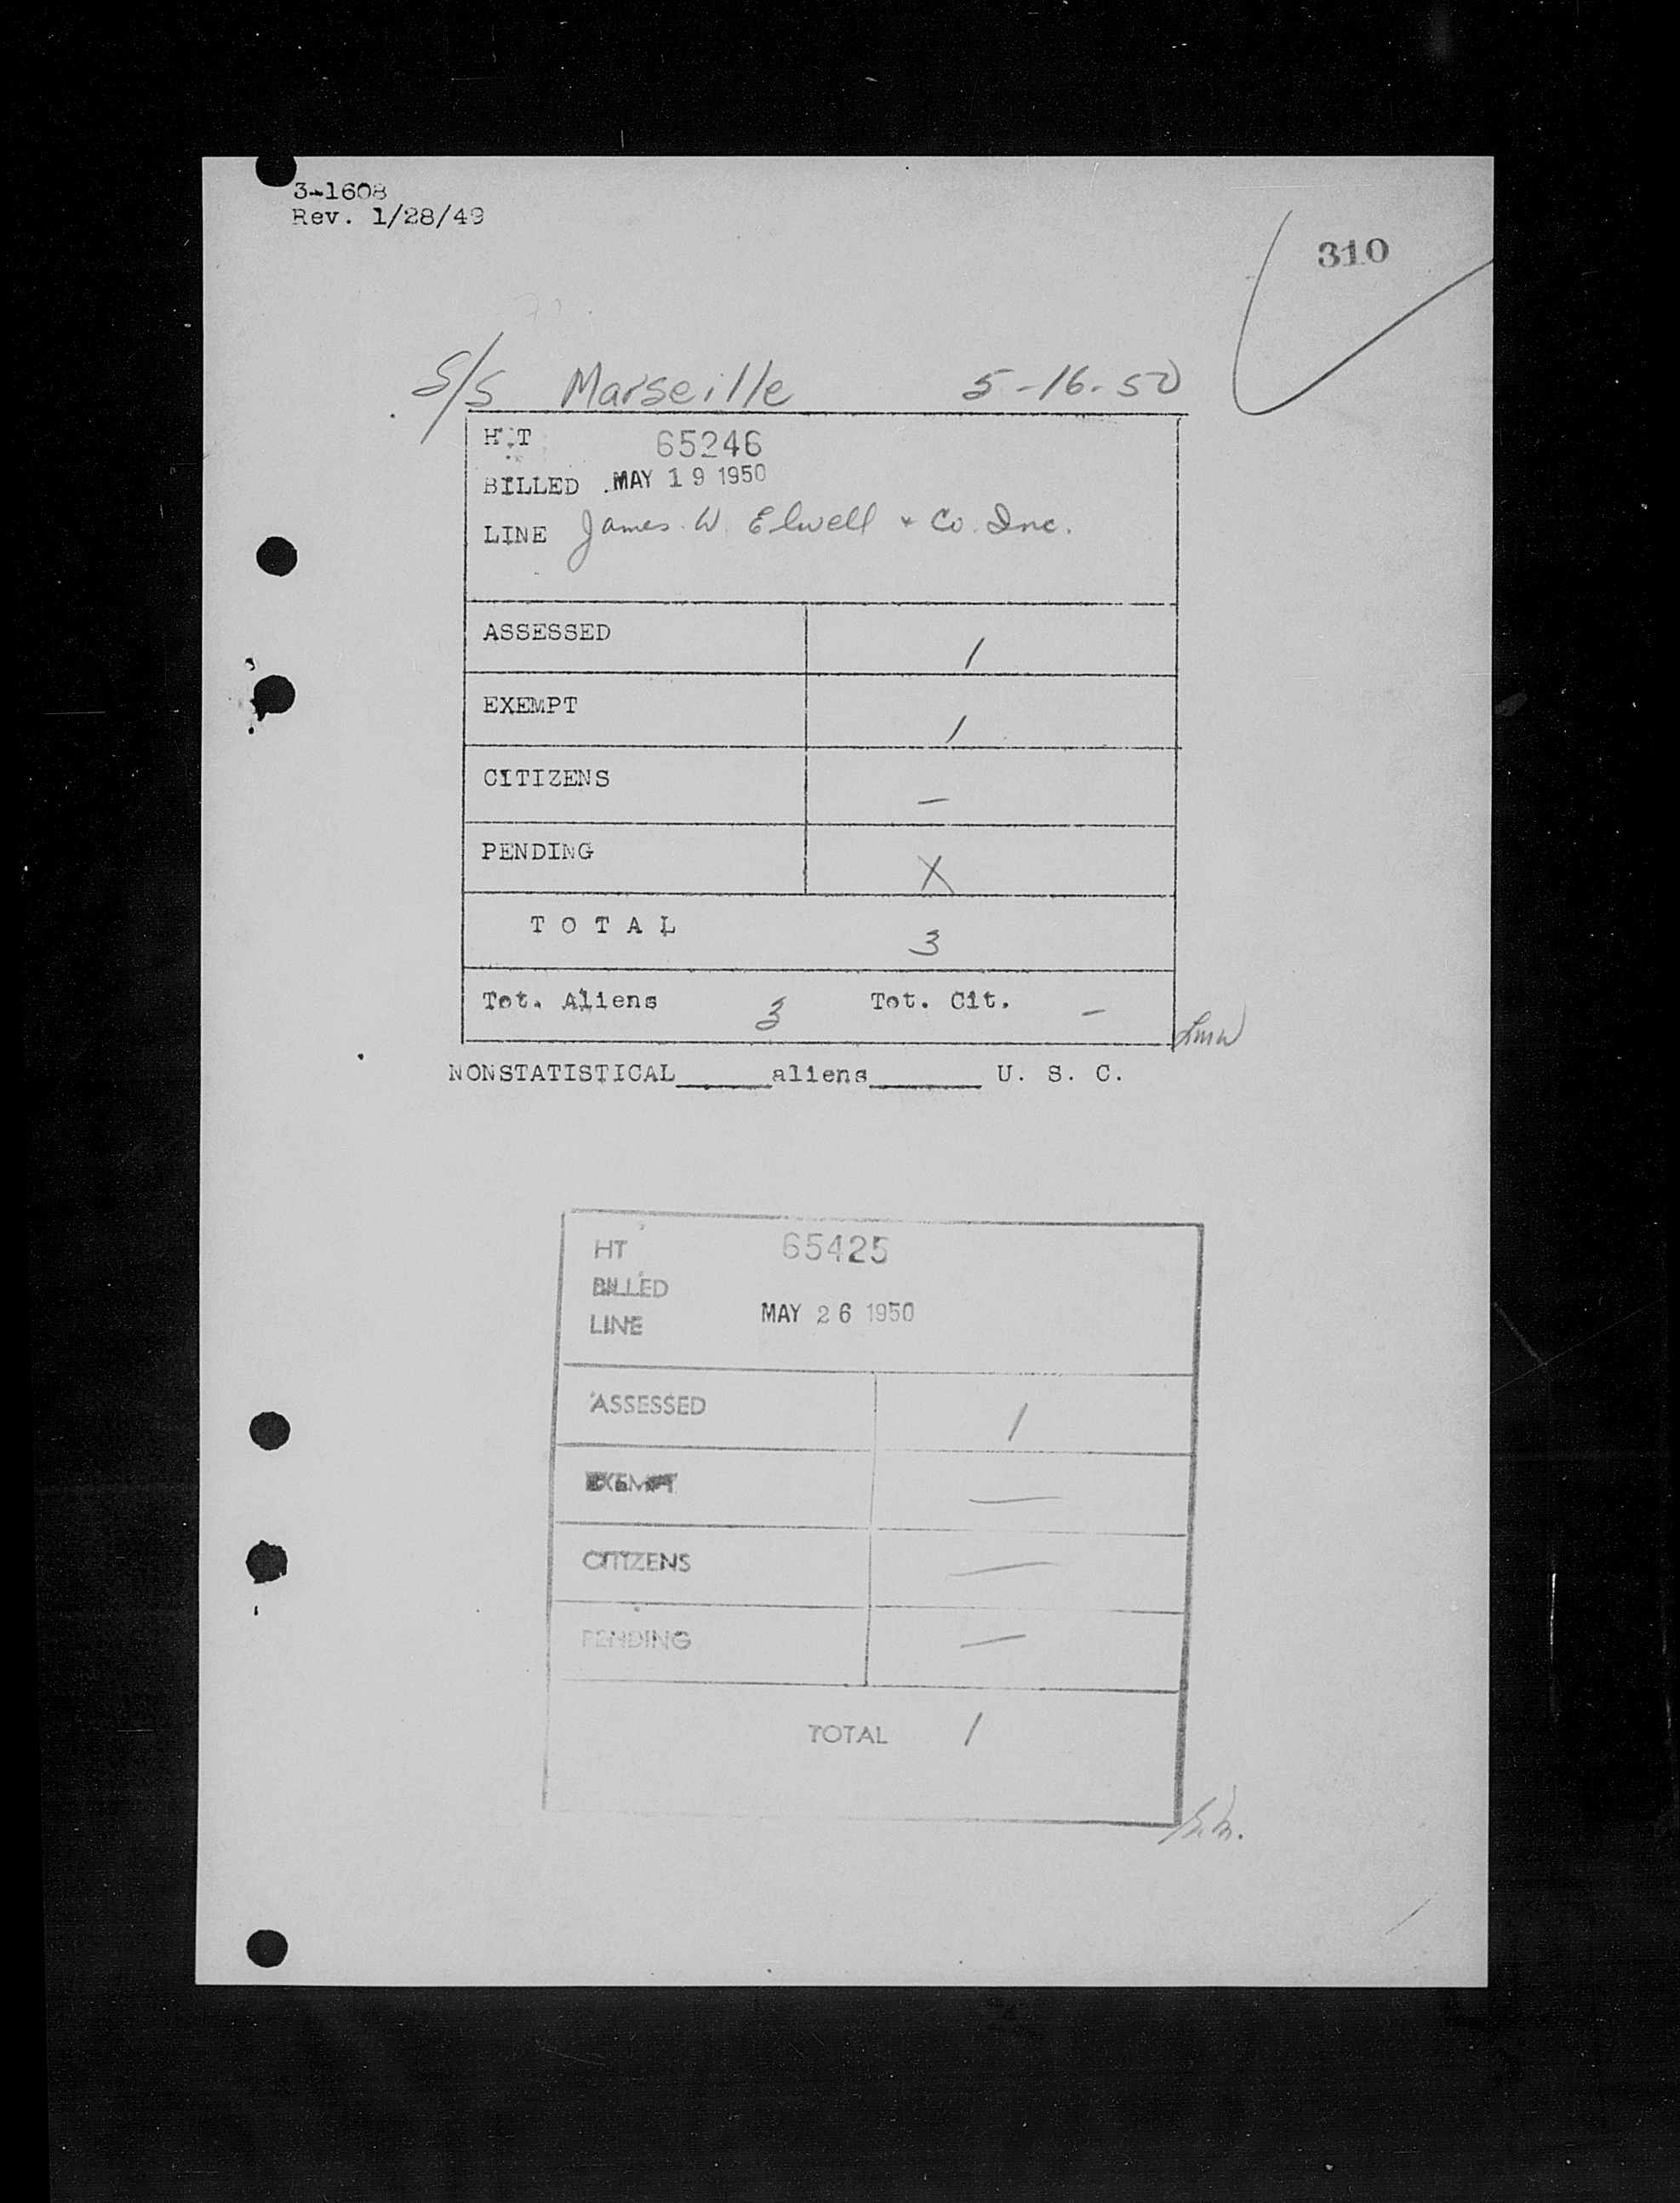 3-1608
Rev. 1/28/49
310
S/S Marseille 5-16-50
HT 65246
BILLED MAY 19 1950
LINE James W. Elwell & Co. Inc.
ASSESSED 1
EXEMPT 1
CITIZENS -
PENDING X
TOTAL 3
Tot. Aliens 3 Tot. Cit. -
NONSTATISTICAL______aliens_______ U. S. C.
HT 65425
BILLED
LINE MAY 26 1950
ASSESSED 1
EXEMPT —
CITIZENS —
PENDING —
TOTAL 1